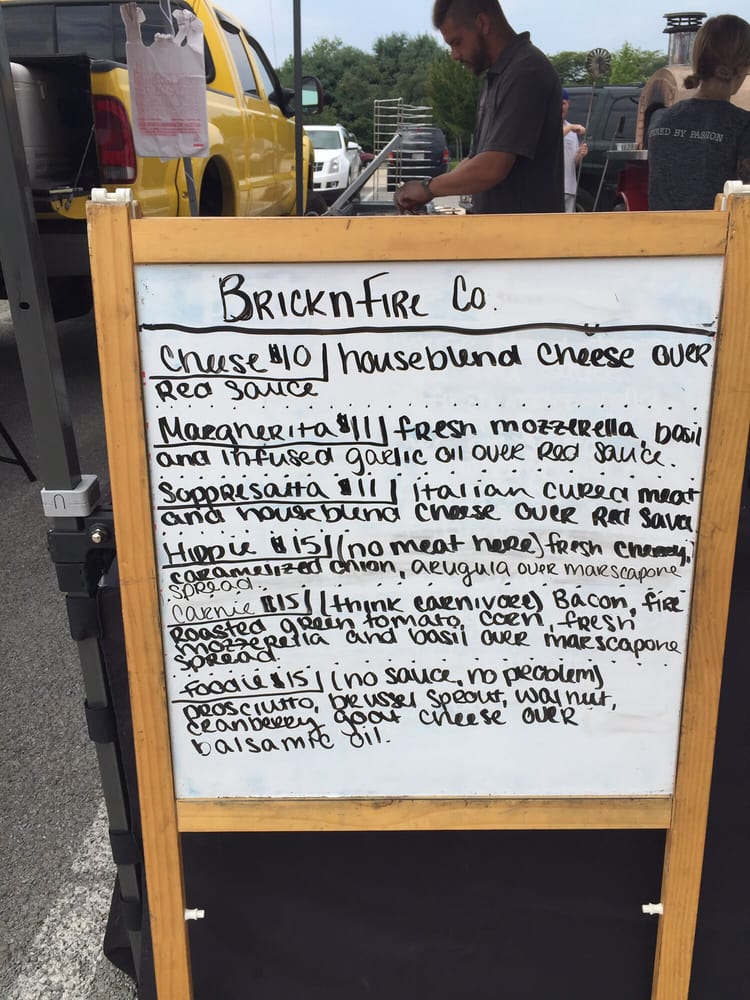 ERED BY PASSION
BRICKNFIRE CO.
Cheese $10 | houseblend cheese over
Red Sauce
Margherita $11 | fresh mozzerella, basil
and infused garlic oil over Red Sauce.
Soppresatta $11 | Italian cured meat
and houseblend cheese over Red Sauce
Hippie $15 | (no meat here) fresh cherry,
caramelized onion, arugula over marscapone
spread.
Carnie $15 | (think carnivore) Bacon, fire
Roasted green tomato, corn, fresh
mozzerella and basil over marscapone
spread.
Foodie $15 | (no sauce, no problem)
prosciutto, brussel sprout, walnut,
cranberry, goat cheese over
balsamic oil.